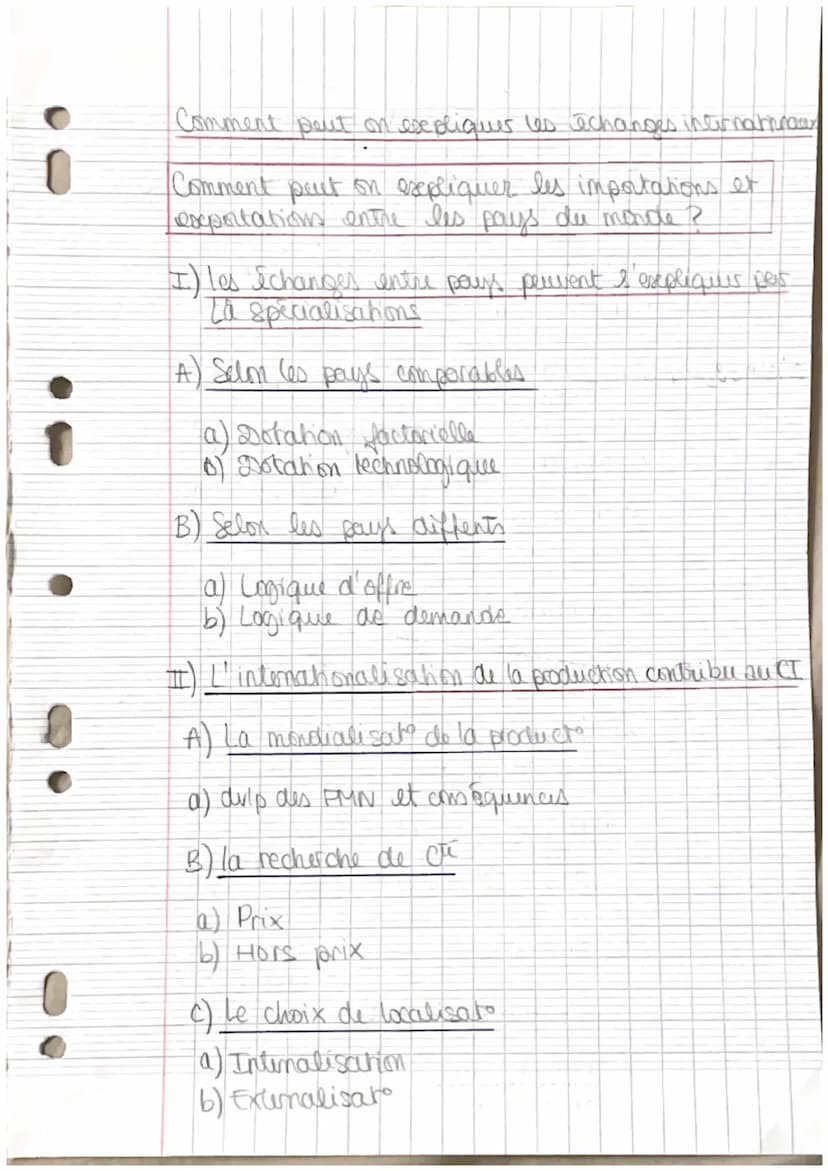 Comment peut on expliquer les échanges internationaux
Comment peut on expliquer les importations et
exportations entre les pays du monde ?
I) les échanges entre pays peuvent s'expliquer par
la spécialisations
A) Selon les pays comparables
a) Dotation factorielle
b) Dotation technologique
B) Selon les pays differents
a) Logique d'offre
b) Logique de demande
II) L'internationalisation de la production contribu au CI
A) La mondialisat° de la product°
a) dvlp des FMN et conséquences
B) la recherche de Cté
a) Prix
b) Hors prix
C) Le choix de localisat°
a) Internalisation
b) Externalisat°